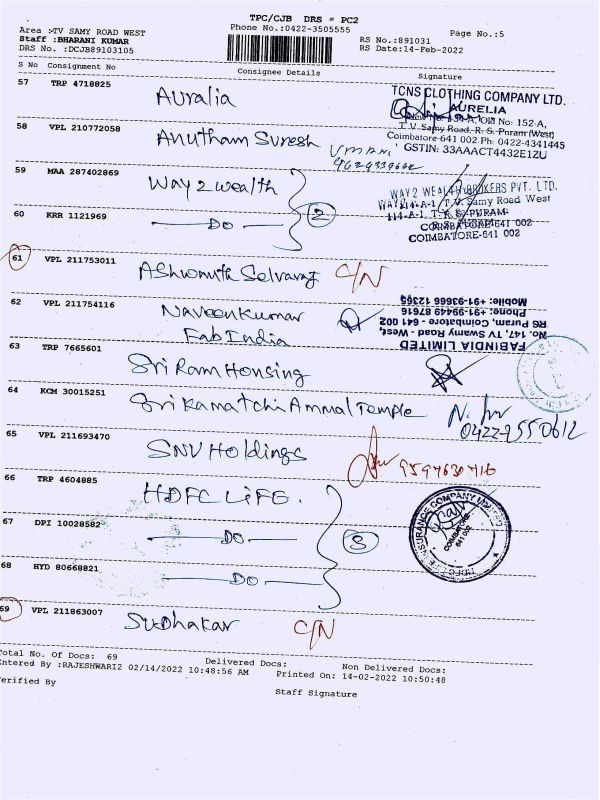 TPC/CJB DRS = PC2
Area :TV SAMY ROAD WEST Phone No.:0422-3505555 Page No.:5
Staff :BHARANI KUMAR RS No.:891031
DRS No. :DCJB89103105 RS Date:14-Feb-2022
S No Consignment No Consignee Details Signature
57 TRP 4718825 Auralia
TCNS CLOTHING COMPANY LTD.
AURELIA
Old No: 152-A,
T.V. Samy Road, R. S. Puram (West)
Coimbatore-641 002. Ph: 0422-4341445
GSTIN: 33AAACT4432E1ZU
58 VPL 210772058 Anutham Suresh
59 MAA 287402869 Way2wealth
WAY 2 WEALTH BROKERS PVT. LTD.
114-A-1, T.V. Samy Road West
R.S. PURAM
COIMBATORE-641 002
60 KRR 1121969 DO 2
61 VPL 211753011 Ashwanth Selvaraj C/N
62 VPL 211754116 Naveenkumar
Fab India
FABINDIA LIMITED
No. 147, TV Swamy Road - West,
RS Puram, Coimbatore 641 002
Phone: +91-99449 87616
Mobile: +91-93666 12365
63 TRP 7665601 Sri Ram Housing
64 KCM 30015251 Sri Kamatchi Ammal Temple
0422-2550612
65 VPL 211693470 SNV Holdings 9597630716
66 TRP 4604885 HDFC LIFE.
67 DPI 10028582 DO
COIMBATORE
641 002
68 HYD 80668821 DO
69 VPL 211863007 Sudhakar C/N
Total No. Of Docs: 69 Delivered Docs: Non Delivered Docs:
Entered By :RAJESHWARI2 02/14/2022 10:48:56 AM Printed On: 14-02-2022 10:50:48
Verified By Staff Signature